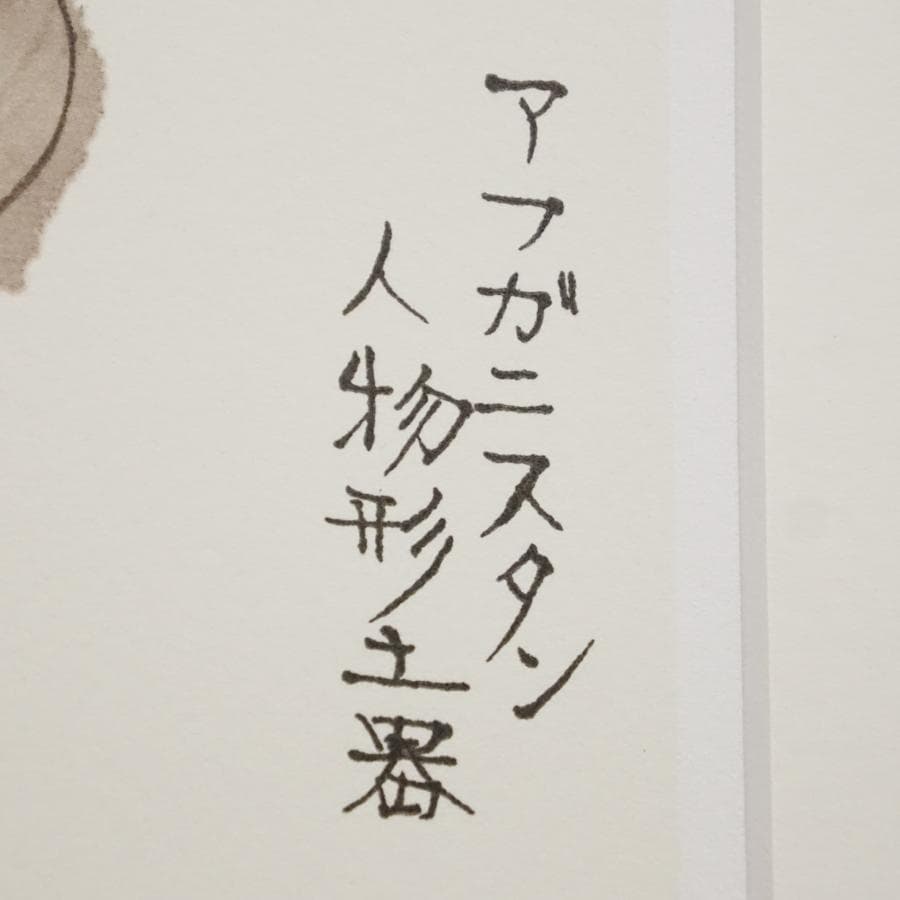 アフガニスタン
人物形土器